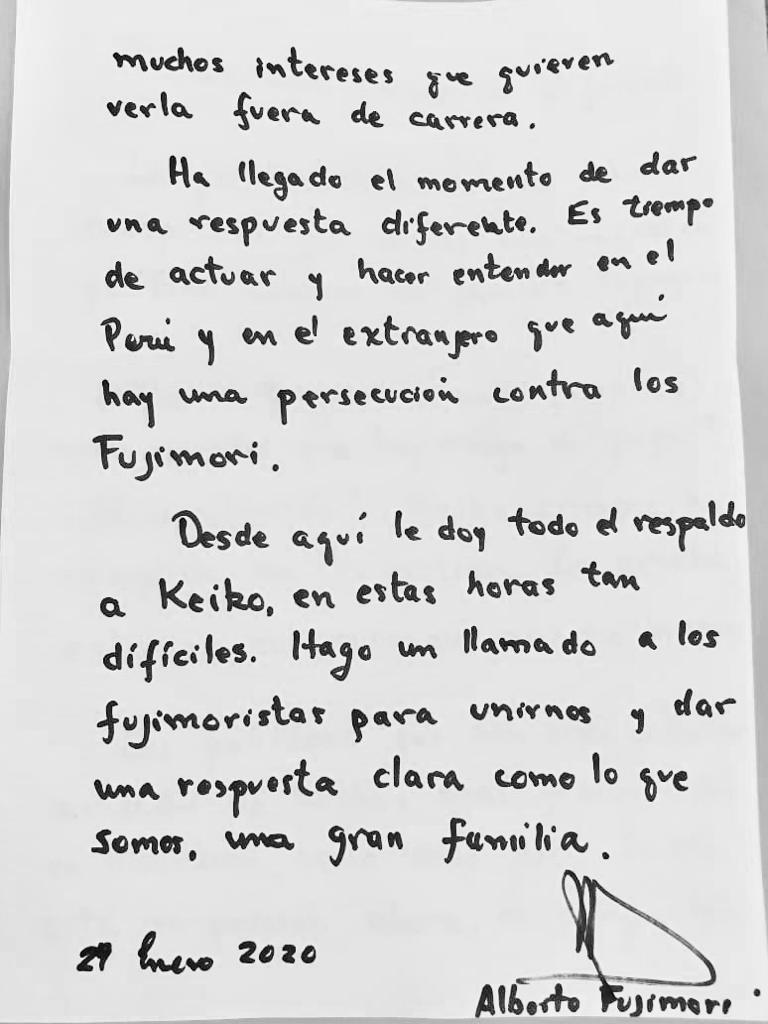 muchos intereses que quieren
verla fuera de carrera.
Ha llegado el momento de dar
una respuesta diferente. Es tiempo
de actuar y hacer entender en el
Perú y en el extranjero que aquí
hay una persecución contra los
Fujimori.
Desde aquí le doy todo el respaldo
a Keiko, en estas horas tan
difíciles. Hago un llamado a los
fujimoristas para unirnos y dar
una respuesta clara como lo que
somos, una gran familia.
29 Enero 2020
Alberto Fujimori